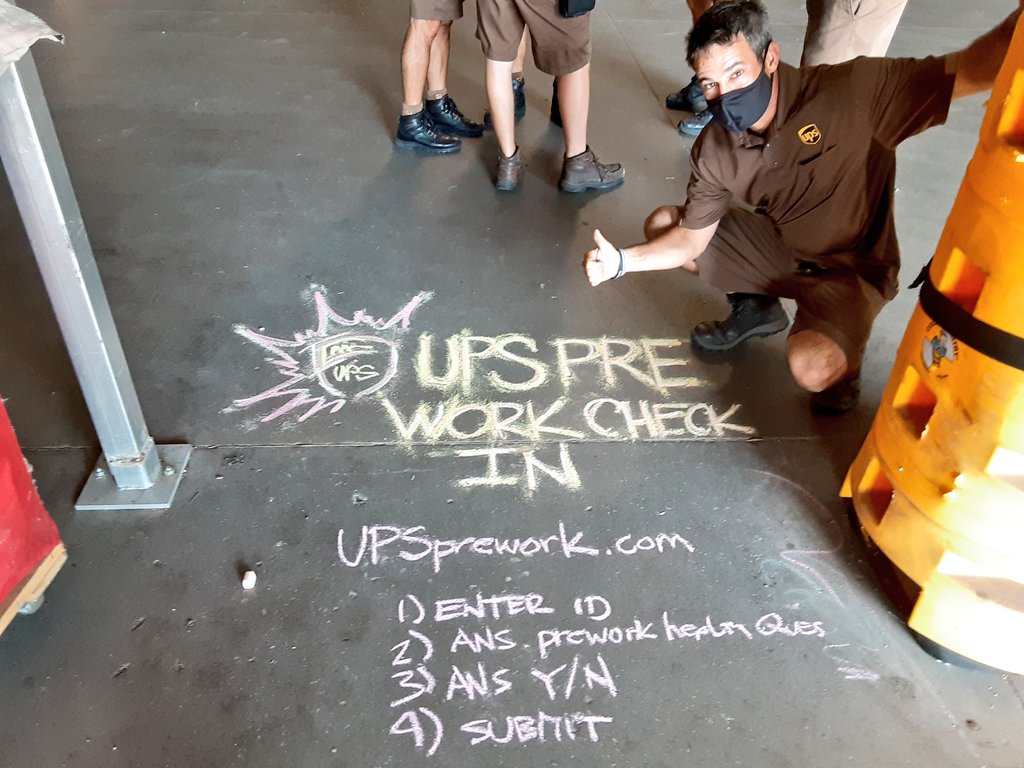 ups
UPS
UPS PRE
WORK CHECK
IN
UPSprework.com
1) ENTER ID
2) ANS. prework health Ques
3) ANS Y/N
4) SUBMIT